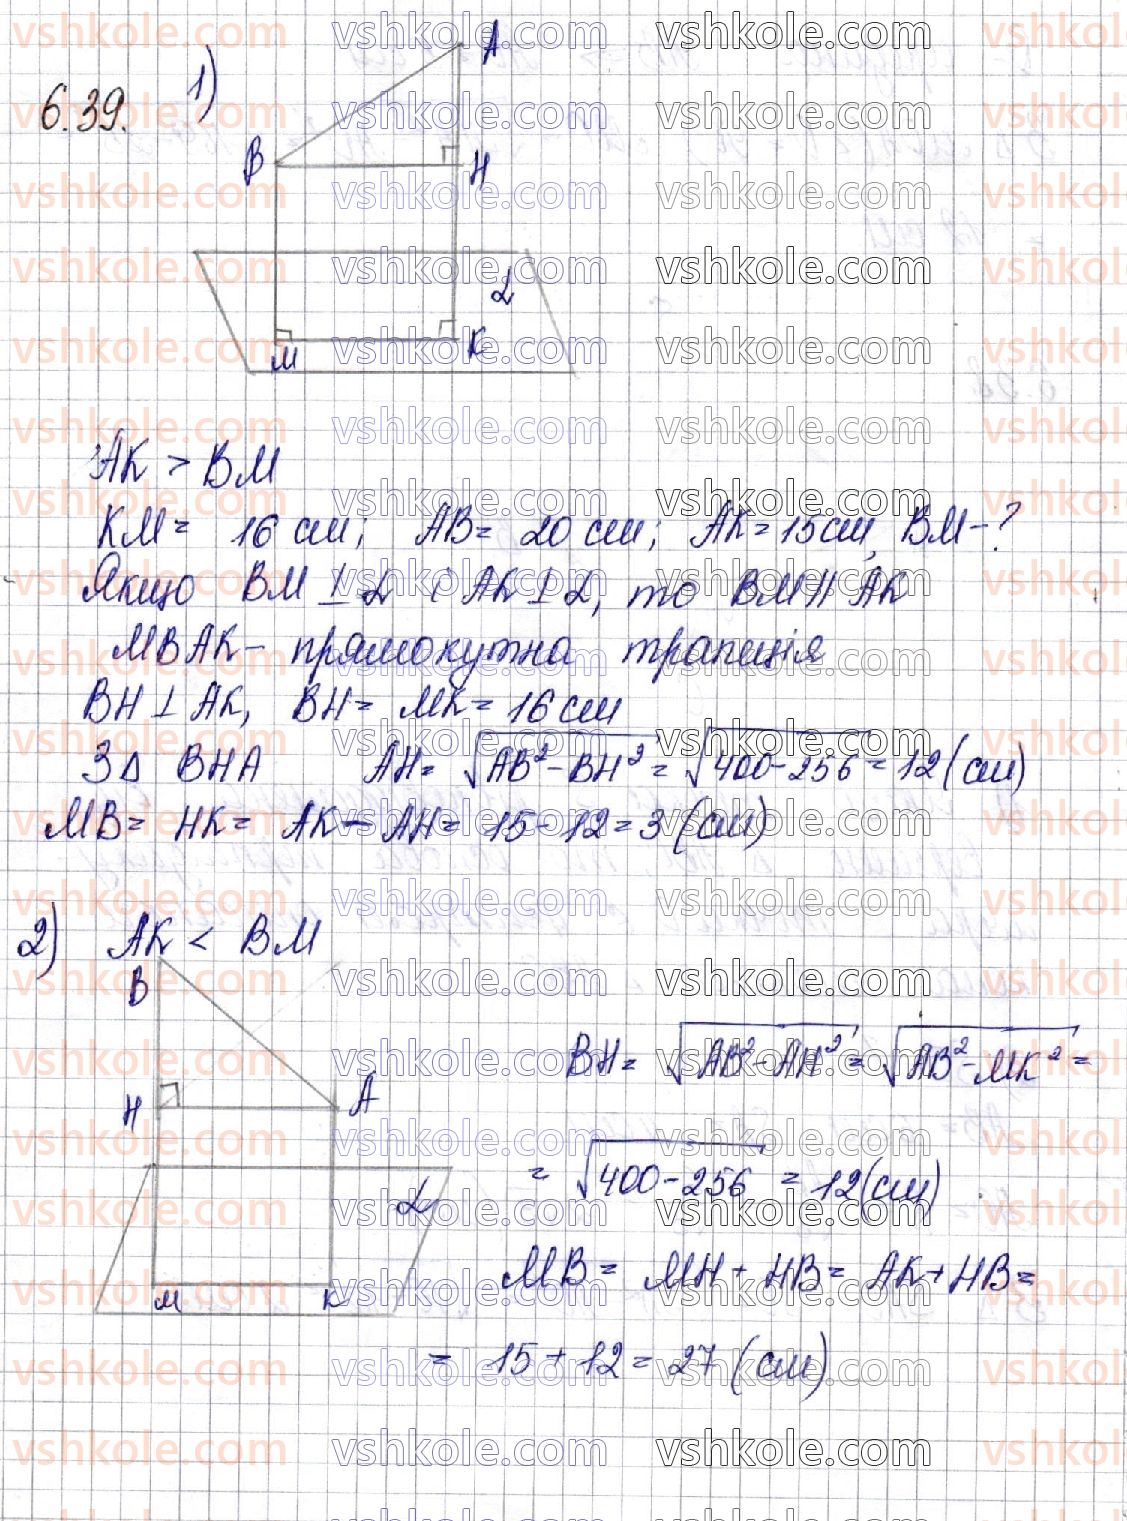 6.39. 1)
A
B
H
α
M
K
AK > BM
KM = 16 см; AB = 20 см; AK = 15 см, BM - ?
Якщо BM ⊥ α і AK ⊥ α, то BM || AK
MBAK - прямокутна трапеція
BH ⊥ AK, BH = MK = 16 см
З Δ BHA AH = √AB² - BH² = √400 - 256 = 12 (см)
MB = HK = AK - AH = 15 - 12 = 3 (см)
2) AK < BM
B
H
A
α
M
K
BH = √AB² - AH² = √AB² - MK² =
= √400 - 256 = 12 (см)
MB = MH + HB = AK + HB =
= 15 + 12 = 27 (см)
vshkole.com